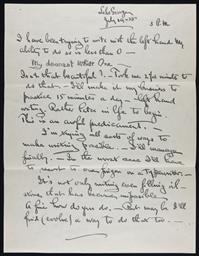 July 29 - 35 -
3 P.M.
I have been trying to write with the left hand. My
ability to do so is less than 0 —
My dearest White One —
Isn't that beautiful? — Took me 2½ minutes to
do that. — I'll make it my business to
practice 15 minutes a day — left hand
writing. Rather late in life to begin.
This is an awful predicament. —
I'm trying all sorts of ways to
make writing possible. — I'll manage
finally. — In the worst case I'll have
to resort to on a Typewriter. —
It's not only writing even filling
that has become impossible.
A fine how do you do. — But may be I'll
find (evolve) a way to do that too. —